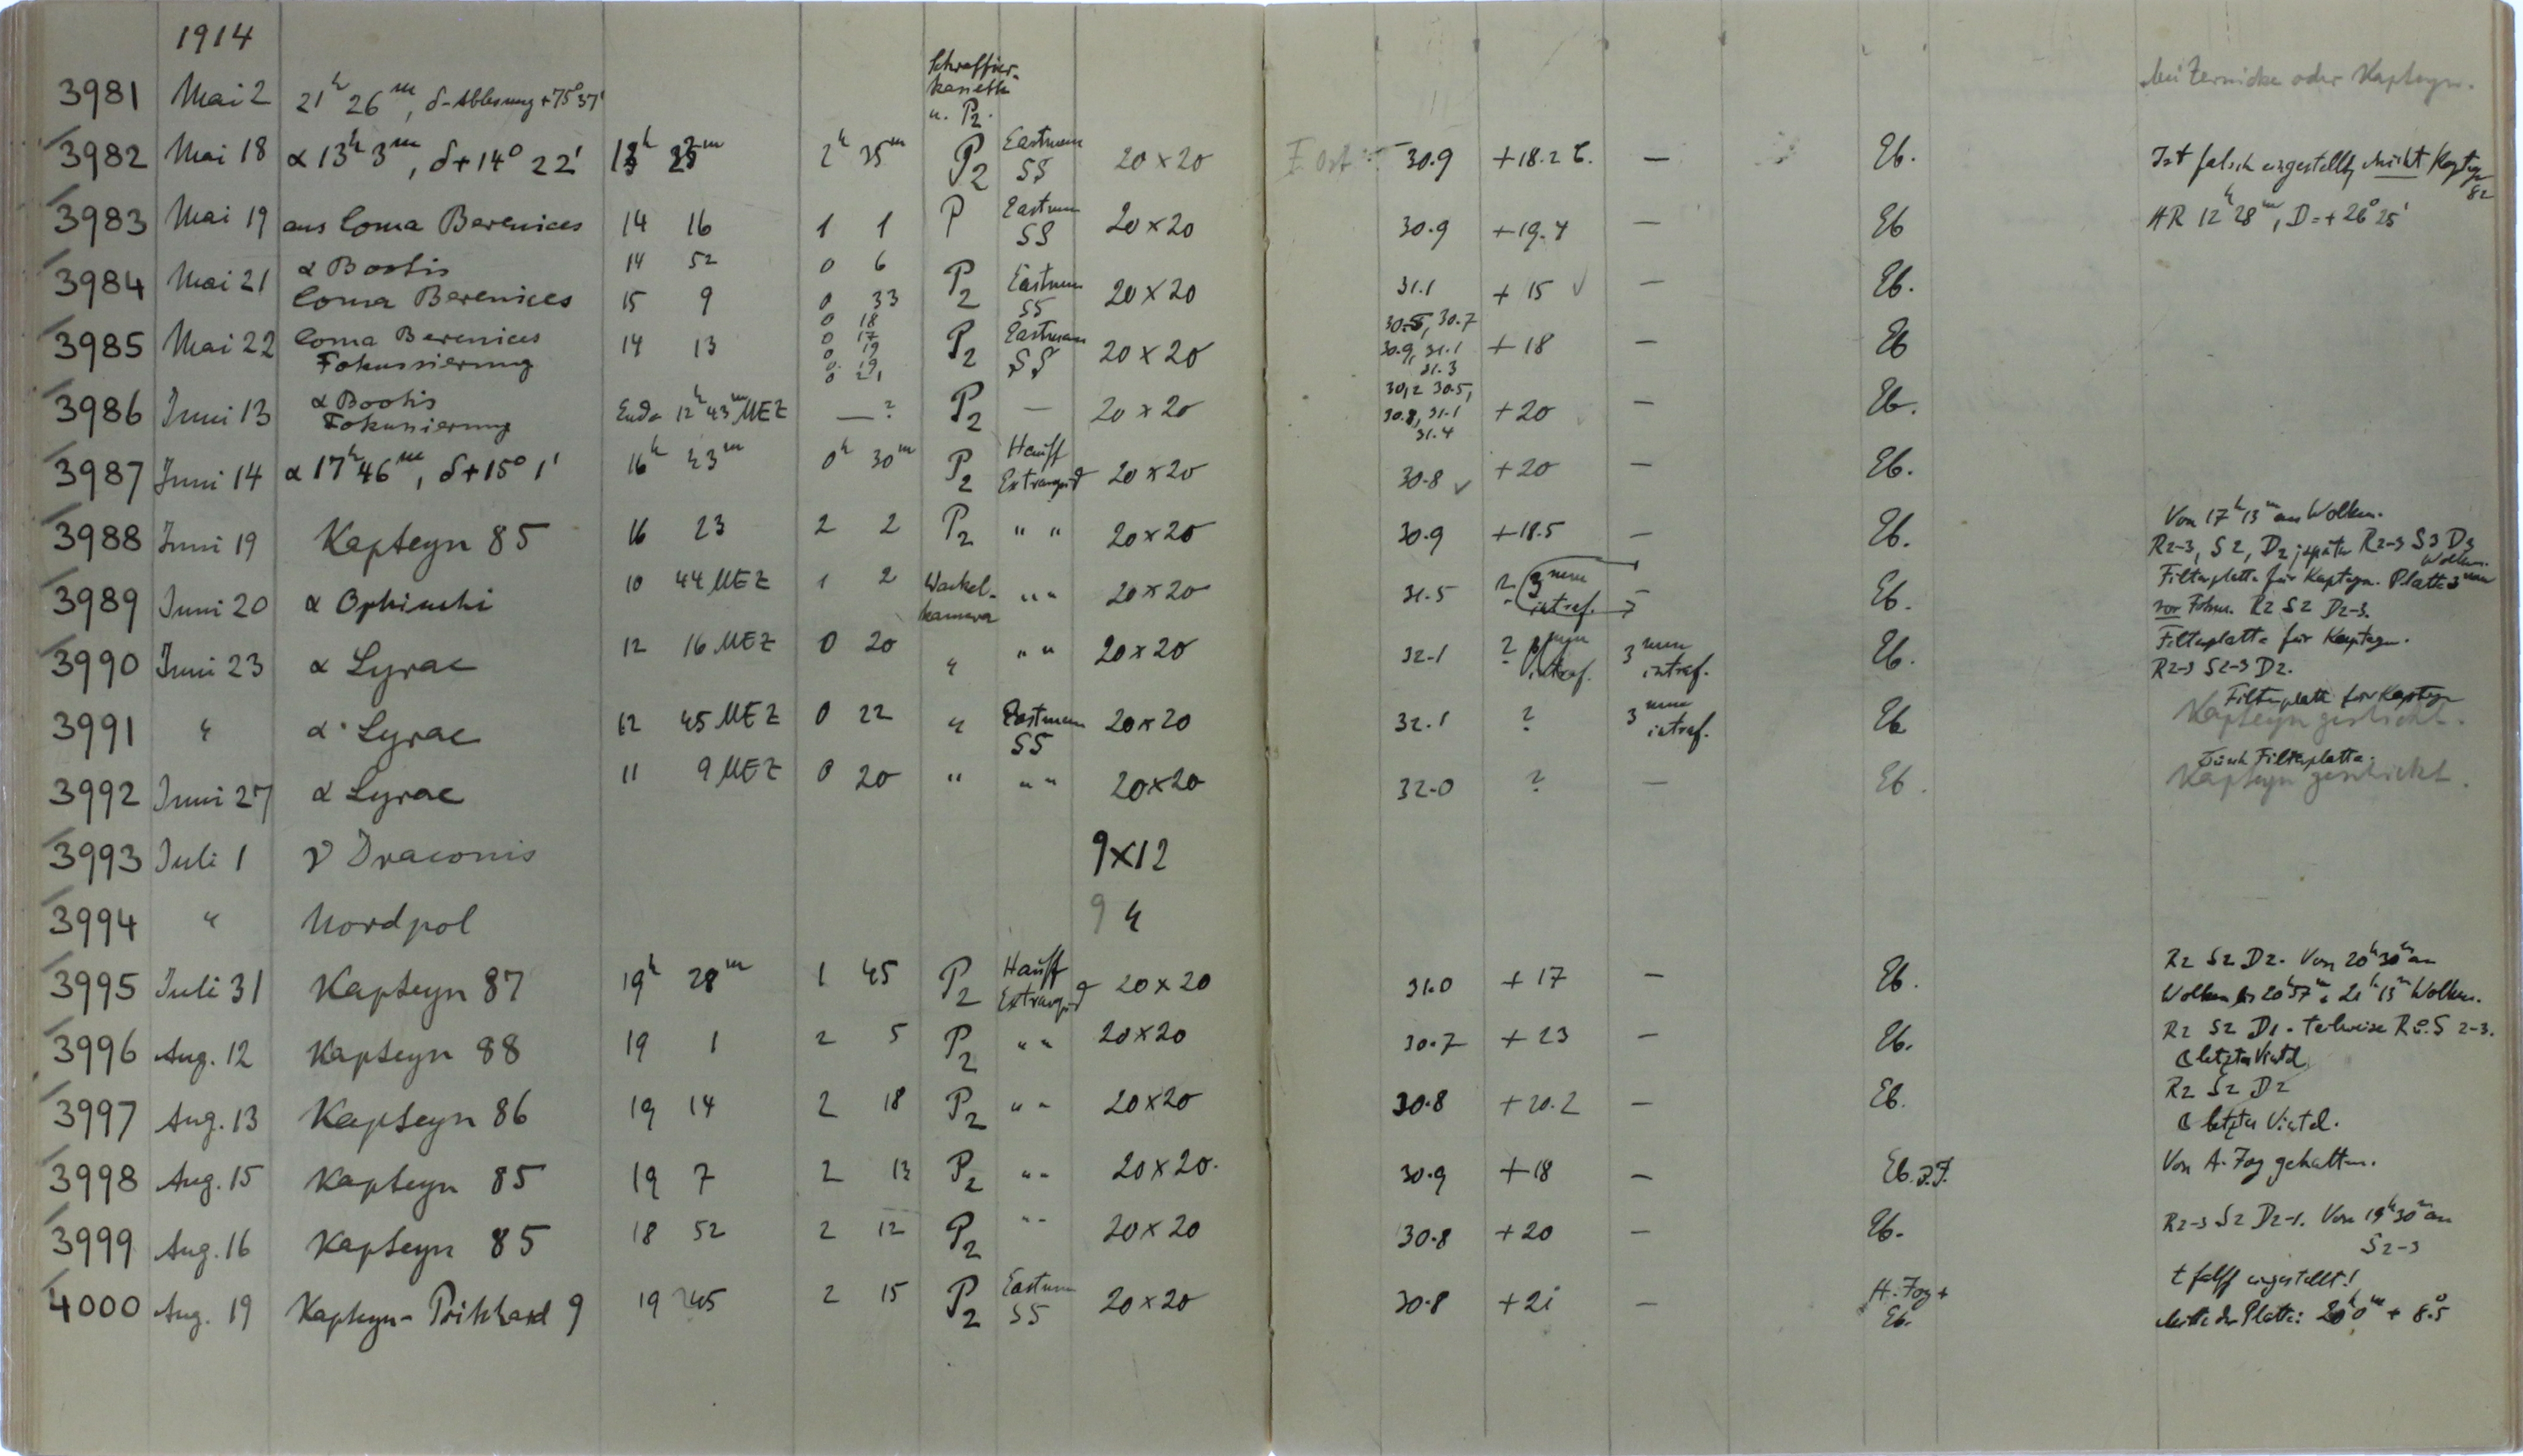 1914
3981 Mai 2 21h 26m, δ-Ablesung +75°37' Schraffier-kassette u. P2. bei Zernicke oder Kapteyn.
3982 Mai 18 α 13h 3m, δ+14° 22' 2h 35m P2 Eastman SS 20×20 30.9 +18.2 C. — Eb. Ist falsch eingestellt, nicht Kapteyn 82
3983 Mai 19 aus Coma Berenices 14 16 1 1 P Eastman SS 20×20 30.9 +19.4 — Eb AR 12h 28m, D=+26° 25'
3984 Mai 21 α Bootis 14 52 0 6
Coma Berenices 15 9 0 33 P2 Eastman SS 20×20 31.1 +15 ✓ — Eb.
3985 Mai 22 Coma Berenices Fokussierung 14 13 0 18 0 17 0 19 0 19 0 21 P2 Eastman SS 20×20 30.5, 30.7 30.9, 31.1 31.3 +18 — Eb
3986 Juni 13 α Bootis Fokussierung Ende 12h 43m MEZ —? P2 — 20×20 30.2 30.5, 30.8, 31.1 31.4 +20 — Eb.
3987 Juni 14 α 17h 46m, δ+15° 1' 16h 43m 0h 30m P2 Hauff Extrarapid 20×20 30.8 ✓ +20 — Eb.
3988 Juni 19 Kapteyn 85 16 23 2 2 P2 " " 20×20 30.9 +18.5 — Eb. Von 17h 13m an Wolken.
R2-3, S2, D2, später R2-3 S3 D3 Wolken.
3989 Juni 20 α Ophiuchi 10 44 MEZ 1 2 Wackel-kamera " " 20×20 31.5 ? 3mm intraf. Eb. Filterplatte für Kapteyn. Platte 3mm
vor Fokus. R2 S2 D2-3.
3990 Juni 23 α Lyrae 12 16 MEZ 0 20 " " " 20×20 32.1 ? intraf. 3mm intraf. Eb. Filterplatte für Kapteyn.
R2-3 S2-3 D2.
3991 " α Lyrae 12 45 MEZ 0 22 " Eastman SS 20×20 32.1 ? 3mm intraf. Eb Filterplatte für Kapteyn
Kapteyn geschickt.
3992 Juni 27 α Lyrae 11 9 MEZ 0 20 " " " 20×20 32.0 ? — Eb. Filterplatte.
Kapteyn geschickt.
3993 Juli 1 ν Draconis 9×12
3994 " Nordpol 9 "
3995 Juli 31 Kapteyn 87 19h 28m 1 45 P2 Hauff Extrarapid 20×20 31.0 +17 — Eb. R2 S2 D2. Von 20h 30m an
Wolken bis 20h 57m 21h 13m Wolken.
3996 Aug. 12 Kapteyn 88 19 1 2 5 P2 " " 20×20 30.7 +23 — Eb. R2 S2 D1. teilweise R u. S 2-3.
☾ letztes Viertel
3997 Aug. 13 Kapteyn 86 19 14 2 18 P2 " " 20×20 30.8 +20.2 — Eb. R2 S2 D2
☾ letztes Viertel.
3998 Aug. 15 Kapteyn 85 19 7 2 13 P2 " " 20×20. 30.9 +18 — Eb. Von A. Fog gehalten.
3999 Aug. 16 Kapteyn 85 18 52 2 12 P2 " " 20×20 30.8 +20 — Eb. R2-3 S2 D2-1. Von 19h 30m an
S2-3
4000 Aug. 19 Kapteyn-Pritchard 9 19 45 2 15 P2 Eastman SS 20×20 30.8 +21 — Fog + Eb. eingestellt!
Mitte der Platte: 20h 0m + 8.°5